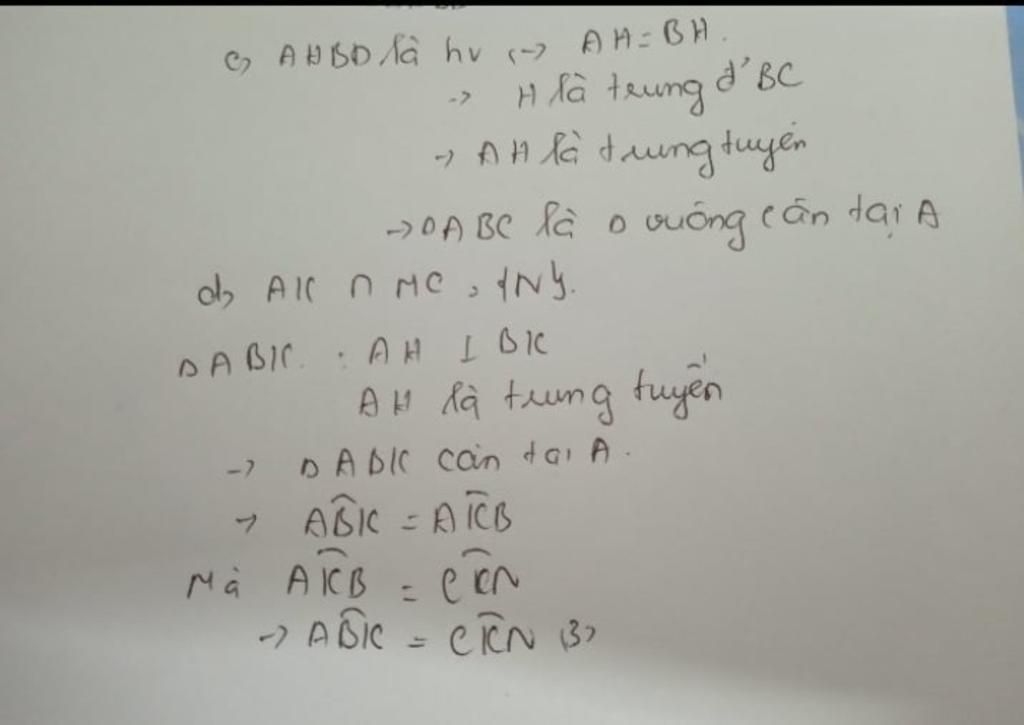 c, AHBD là hv <-> AH = BH.
-> H là trung đ' BC
-> AH là trung tuyến
-> Δ ABC là Δ vuông cân tại A
d, AK ∩ MC, {N}.
Δ ABK : AH ⊥ BK
AH là trung tuyến
-> Δ ABK cân tại A.
-> AB̂K = AK̂B
Mà AK̂B = CK̂N
-> AB̂K = CK̂N (3)